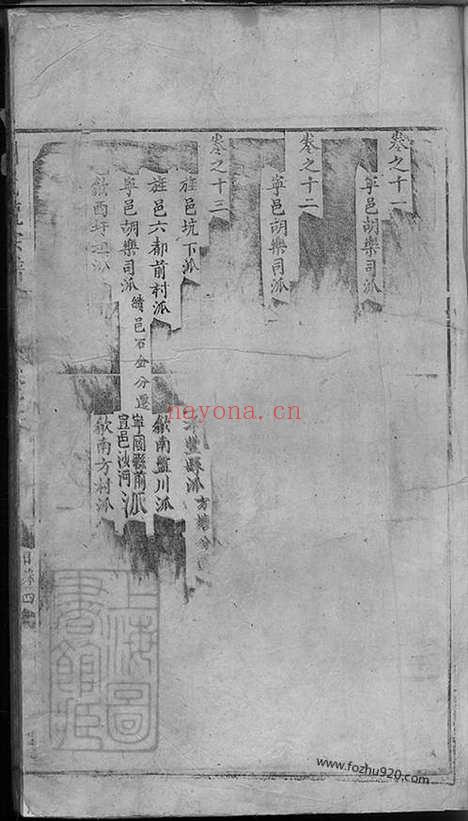 卷之十一
寧邑胡樂司派
卷之十二
寧邑胡樂司派
卷之十三
旌邑坑下派
豐縣派 方塘分
旌邑六都前村派
歙南藍川派
寧邑胡樂司派 績邑石金分遷
寧國縣前派
宣邑沙河
歙西 派
歙南方村派
目錄 四
上海圖書館藏
nayona.cn
www.fozhu920.com